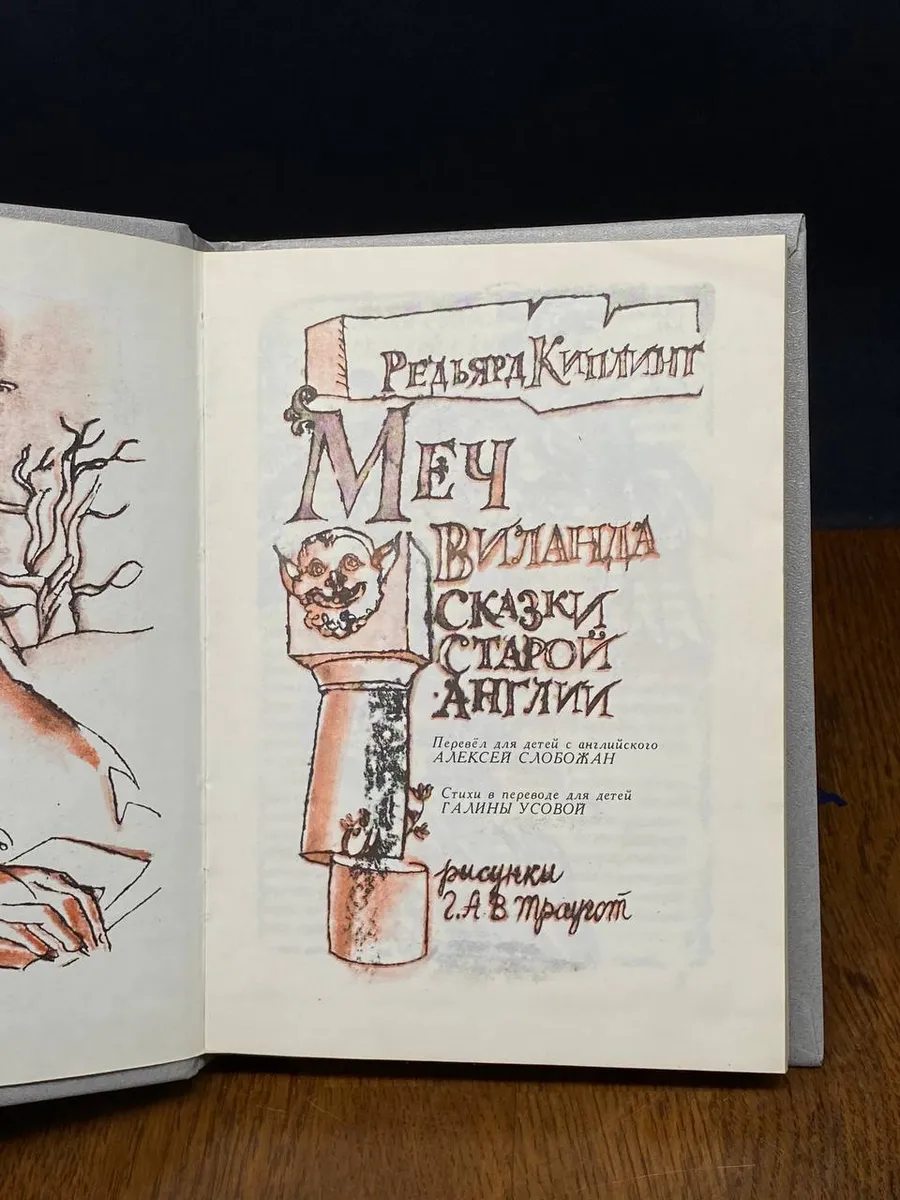 Редьярд Киплинг
Меч
Виланда
Сказки
Старой
Англии
Перевёл для детей с английского
АЛЕКСЕЙ СЛОБОЖАН
Стихи в переводе для детей
ГАЛИНЫ УСОВОЙ
рисунки
Г.А.В Траугот